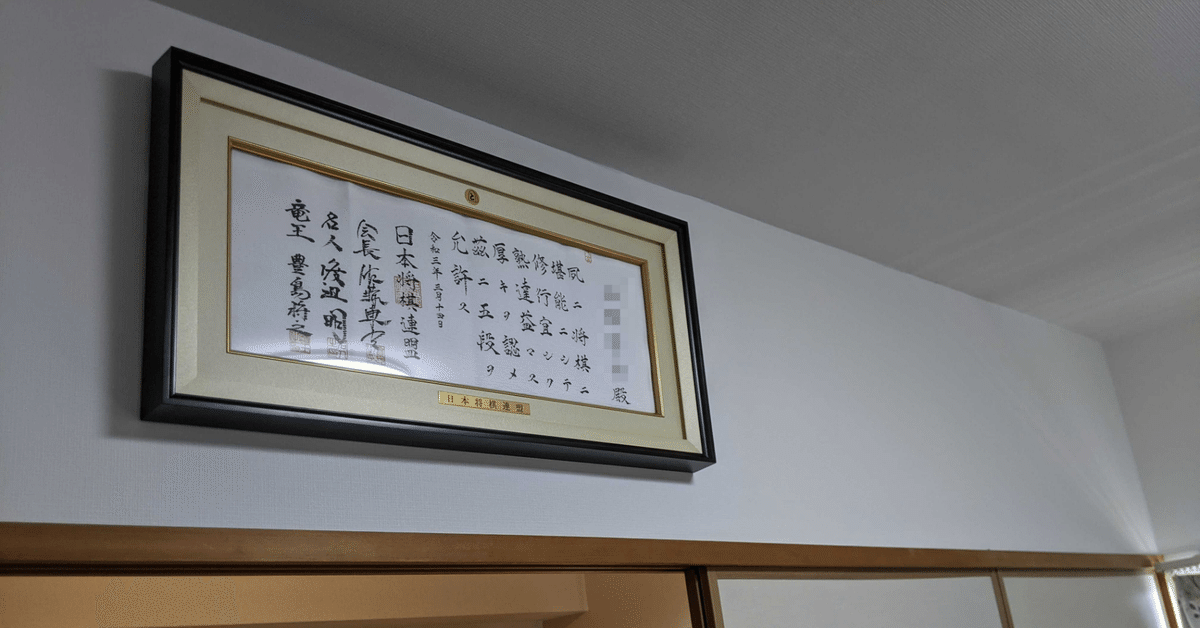 と
殿
夙ニ将棋ニ
堪能ニシテ
修行宜シク
熟達益マス
厚キヲ認メ
茲ニ五段ヲ
允許ス
令和三年三月十四日
日本将棋連盟
会長 佐藤康光
名人 渡辺明
竜王 豊島将之
日本将棋連盟